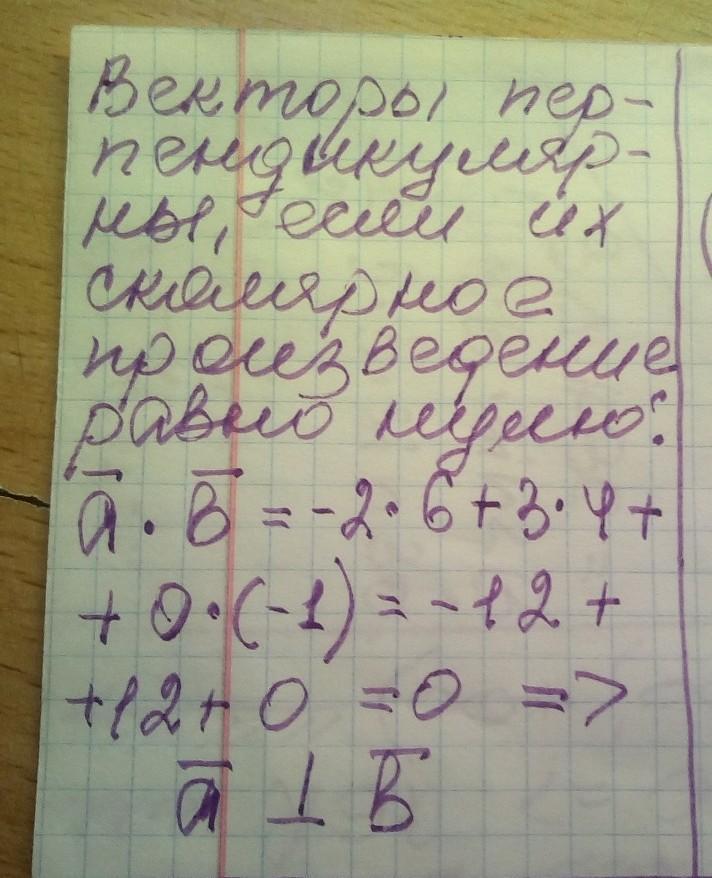 Векторы пер-
пендикуляр-
ны, если их
скалярное
произведение
равно нулю:
a̅ · b̅ = -2 · 6 + 3 · 4 +
+ 0 · (-1) = -12 +
+12 + 0 = 0 =>
a̅ ⊥ b̅